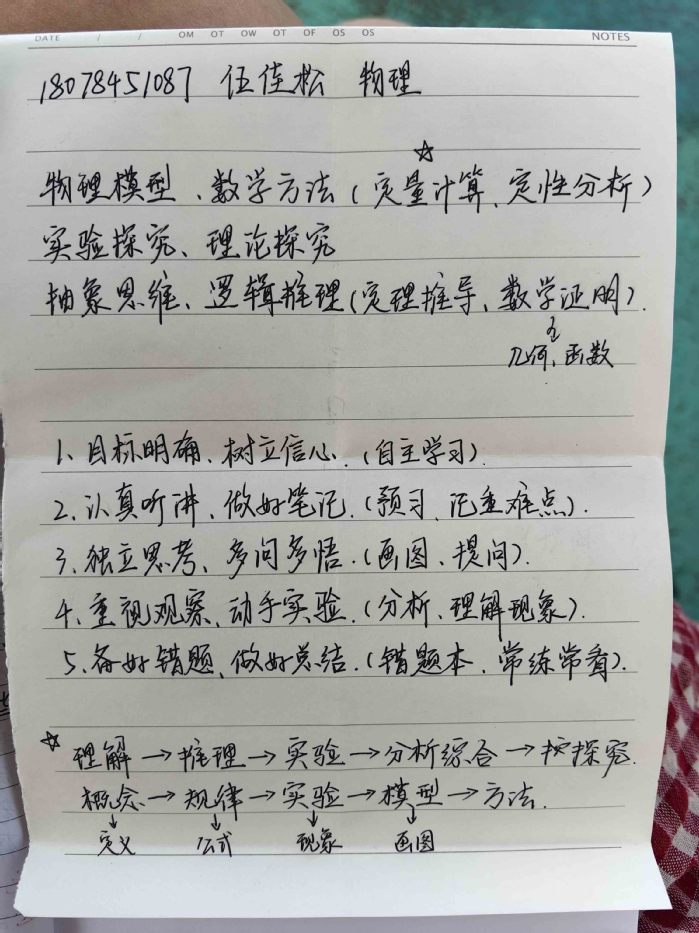 DATE / / OM OT OW OT OF OS OS NOTES
18078451087 伍佳松 物理
☆
物理模型、数学方法(定量计算、定性分析)
实验探究、理论探究
抽象思维、逻辑推理(定理推导、数学证明).
几何、函数
1、目标明确、树立信心.(自主学习).
2、认真听讲、做好笔记.(预习、记重难点).
3、独立思考、多问多悟.(画图、提问).
4、重视观察、动手实验.(分析、理解现象).
5、备好错题、做好总结.(错题本、常练常看).
☆理解→推理→实验→分析综合→探究.
概念→规律→实验→模型→方法.
↓ ↓ ↓ ↓
定义 公式 现象 画图